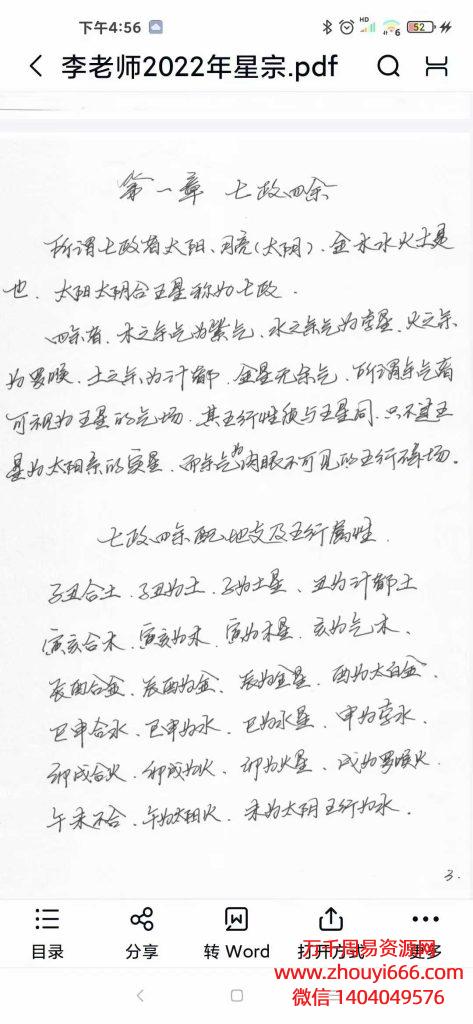 下午4:56
HD
6
52
李老师2022年星宗.pdf
第一章 七政四余
所谓七政者太阳、月亮(太阴)、金木水火土是
也. 太阳太阴合五星称为七政.
四余者, 木之余气为紫气, 水之余气为孛星, 火之余
为罗睺, 土之余为计都, 金星无余气, 所谓余气者
可视为五星的气场, 其五行性质与五星同, 只不过五
星为太阳系的实星, 而余气为肉眼不可见的五行磁场。
七政四余配地支及五行属性
子丑合土. 子丑为土. 子为土星、丑为计都土
寅亥合木. 寅亥为木. 寅为木星. 亥为气木.
辰酉合金. 辰酉为金. 辰为金星. 酉为太白金.
巳申合水. 巳申为水. 巳为水星. 申为孛水.
卯戌合火. 卯戌为火. 卯为火星. 戌为罗睺火.
午未不合. 午为太阳火. 未为太阴五行为水.
3.
目录
分享
转 Word
打开方式
更多
万千周易资源网
www.zhouyi666.com
微信1404049576